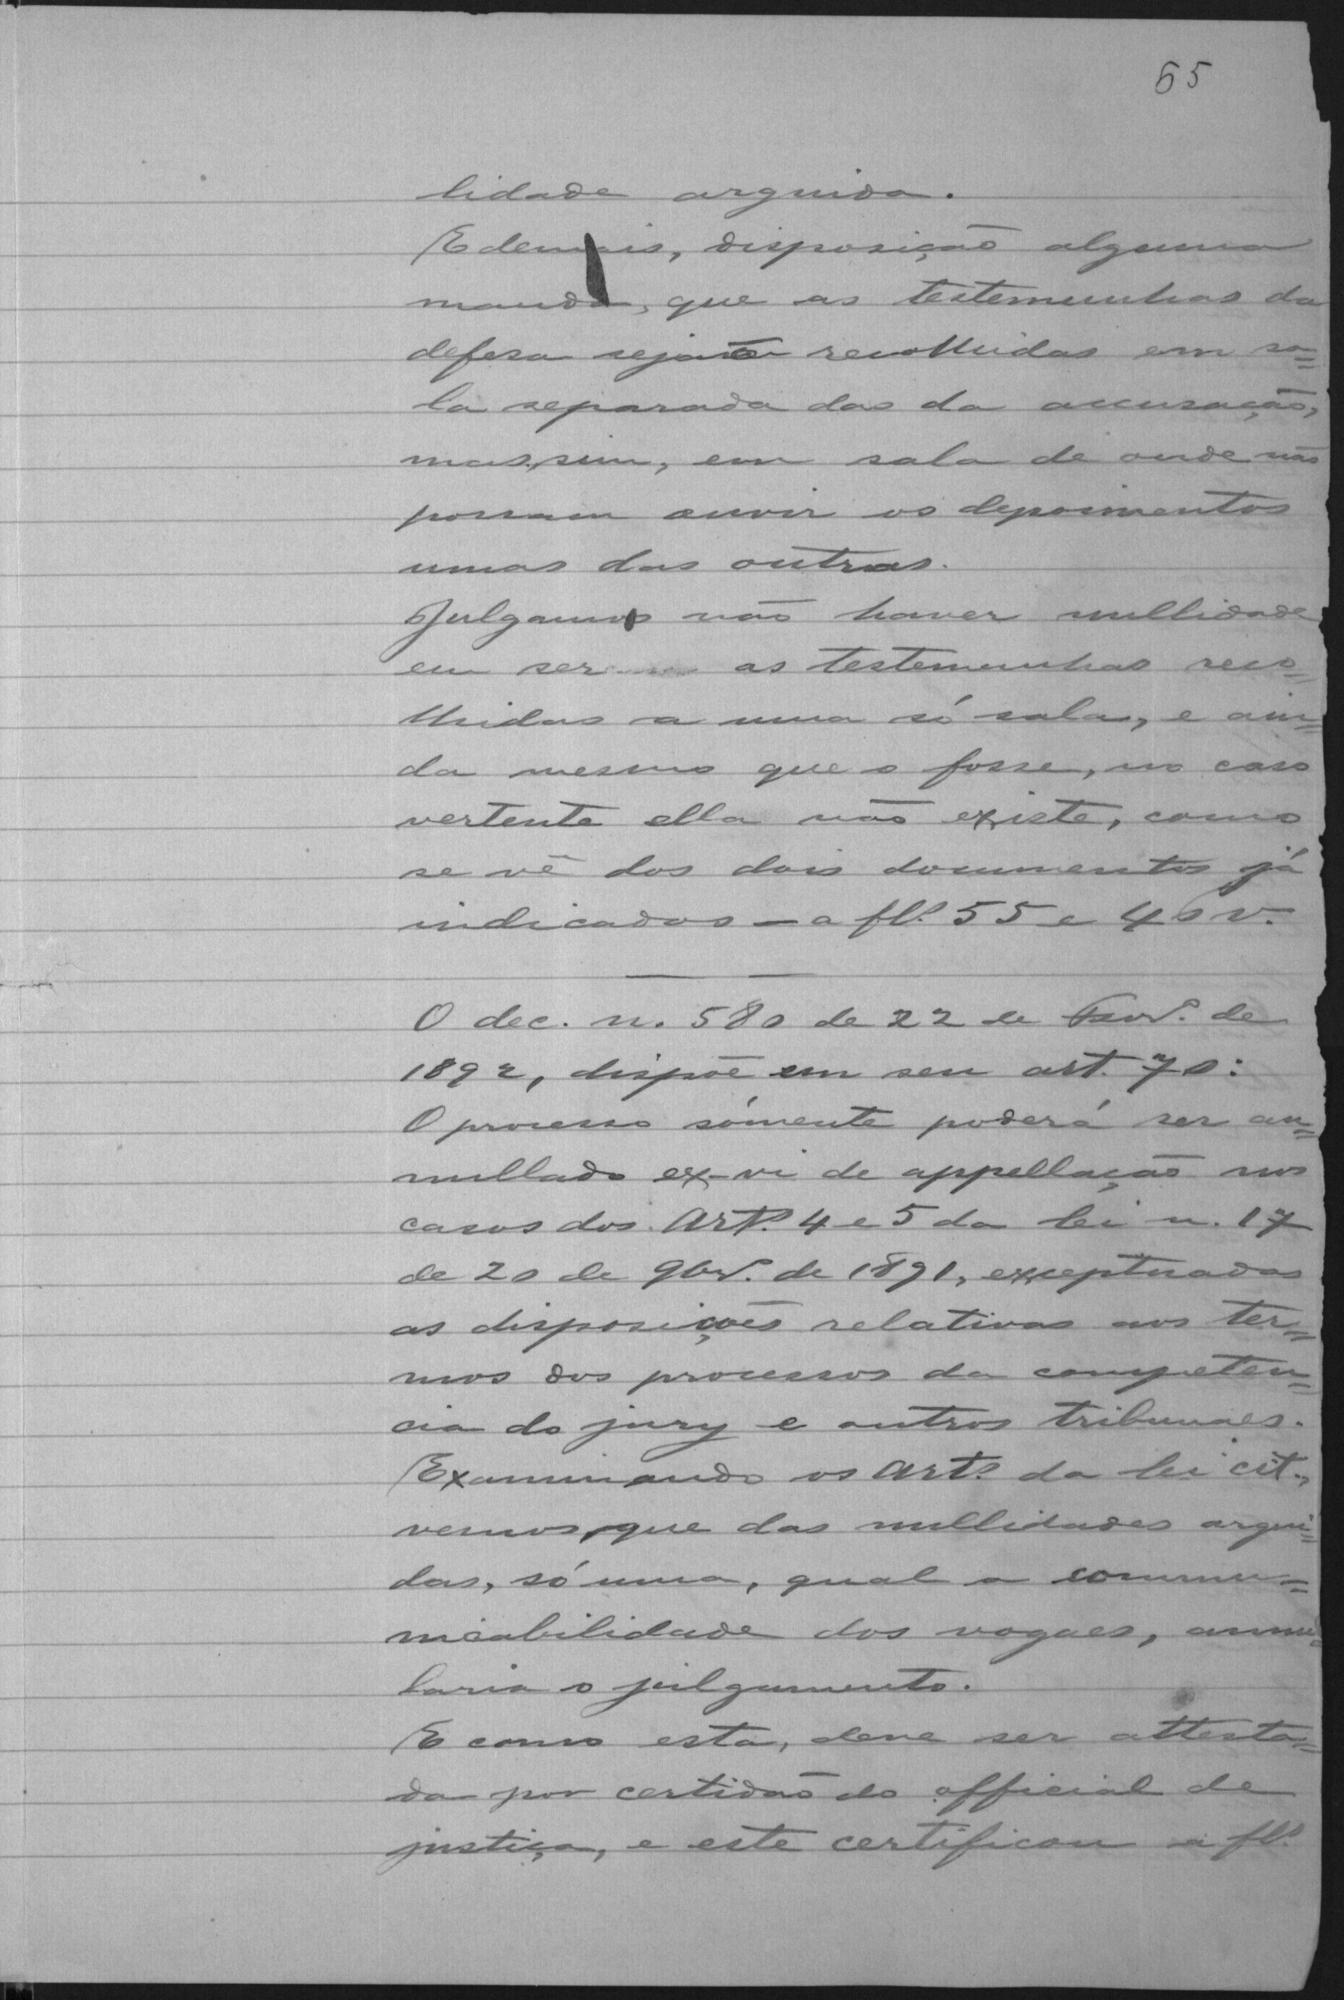 65
lidade arguida.
E demais, disposição alguma
manda, que as testemunhas da
defesa sejão recolhidas em sa=
la separada das da accusação,
mas, sim, em sala de onde não
possam ouvir os depoimentos
umas das outras.
Julgamos não haver nullidade
em ser as testemunhas reco=
lhidas a uma só sala, e ain=
da mesmo que o fosse, no caso
vertente ella não existe, como
se vê dos dois documentos já
indicados — a fls. 55 e 46 v.
O dec. n. 580 de 22 de de
1892, dispõe em seu art. 70:
O processo sómente poderá ser an=
nullado ex-vi de appellação nos
casos dos Arts. 4 e 5 da lei n. 17
de 20 de 9br. de 1891, exceptuadas
as disposições relativas aos ter=
mos dos processos da competen=
cia do jury e outros tribunaes.
Examinando os Arts. da lei cit.,
vemos, que das nullidades argui=
das, só uma, qual a commu=
nicabilidade dos vogaes, annul=
laria o julgamento.
E como esta, deve ser attesta=
da por certidão do official de
justiça, e este certificou a fls.